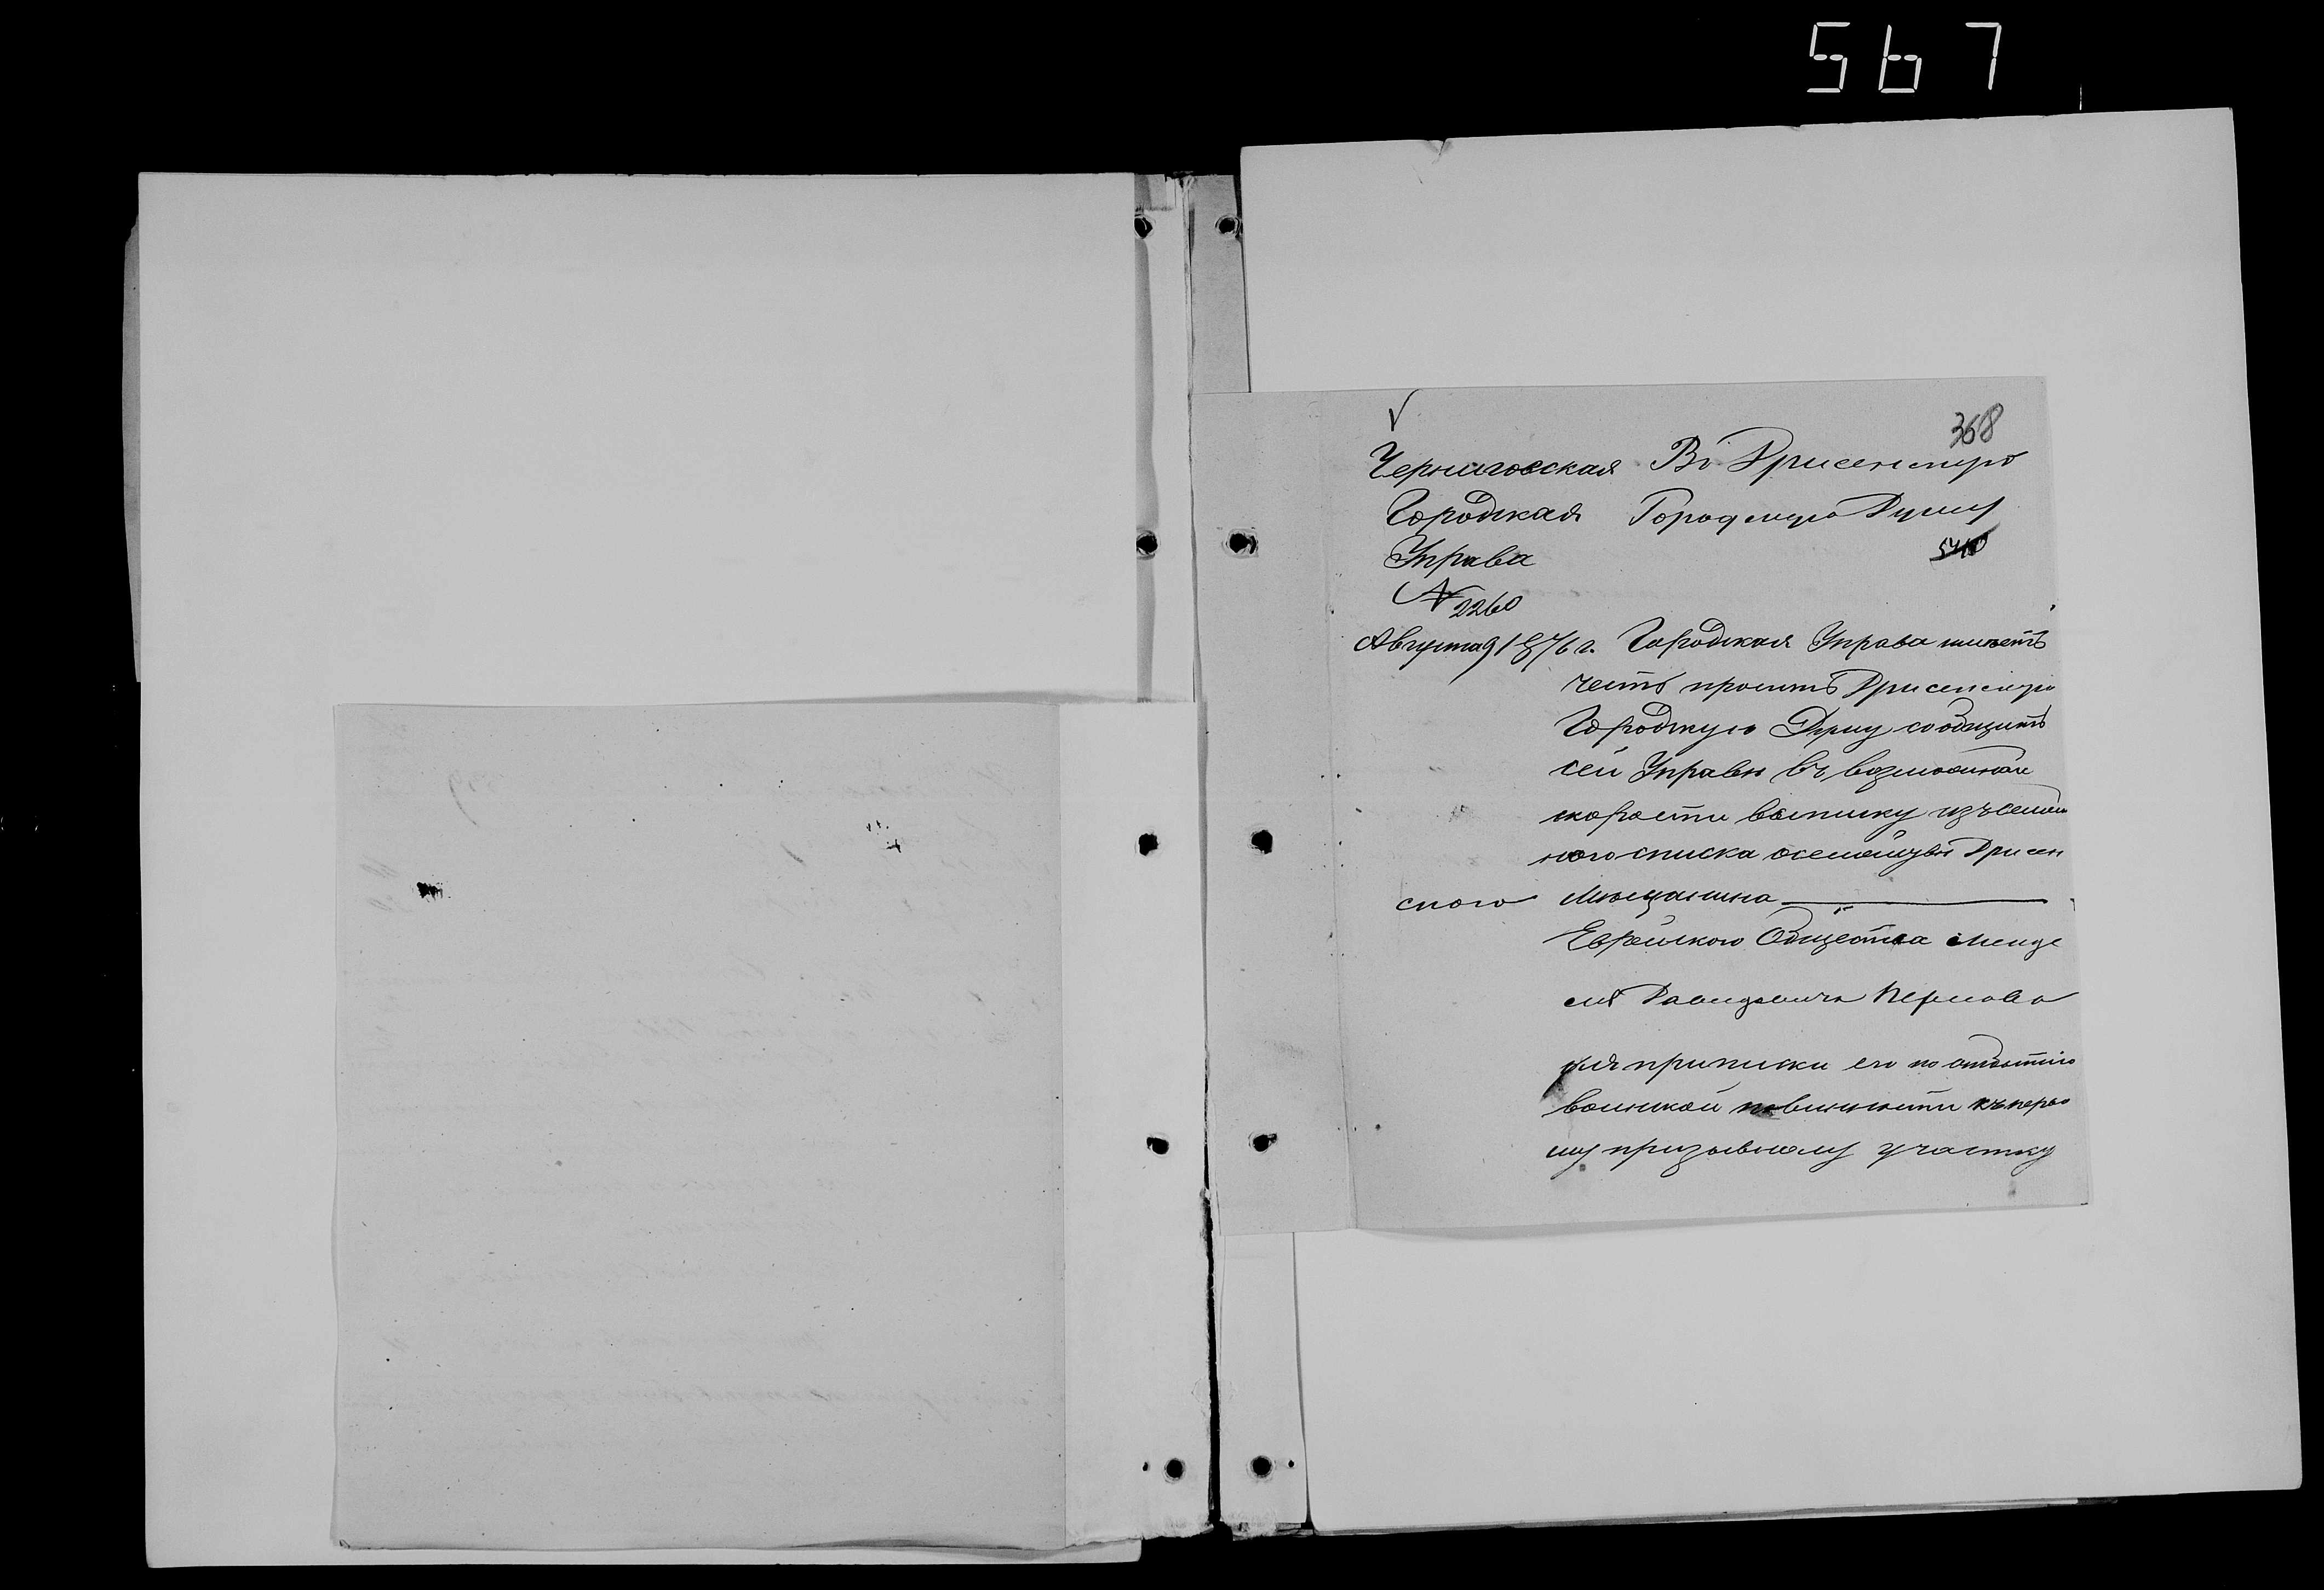 567
368
Черниговская
Городская
Управа
№ 2260
Августа 9 1876 г.
Въ Дрисенскую
Городскую Думу
540
Городская Управа имѣетъ
честь просить Дрисенскую
Городскую Думу сообщить
сей Управѣ въ возможной
скорости выписку изъ семей
наго списка о семействѣ Дрисен
скаго Мѣщанина
Еврейского Общества Менде
ля Давидовича
для приписки его по отбытію
воинской повинности къ перво
му призывному участку